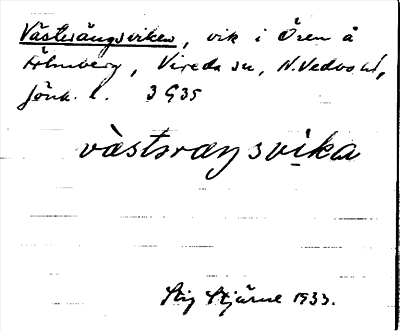 Västerängsviken, vik i Ören å
Holmberg, Vireda sn, N. Vedbo hd,
Jönk. l. 3 G35
västsræŋsvika
Stig Stjärne 1933.